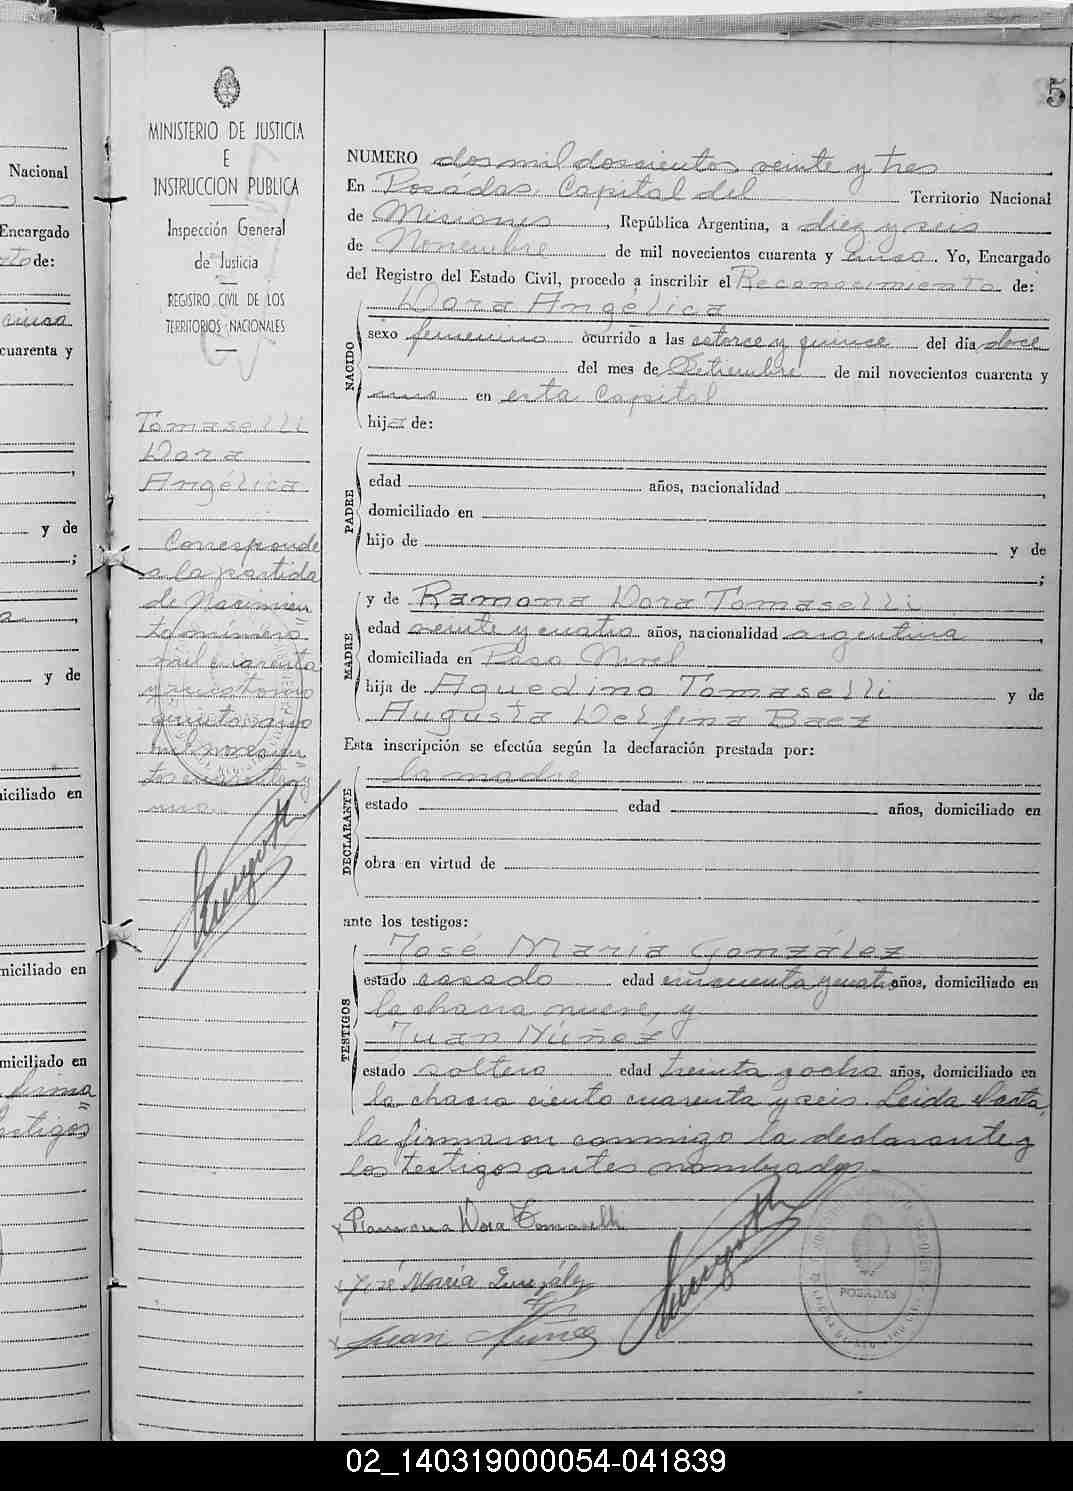 5
MINISTERIO DE JUSTICIA
E
INSTRUCCION PUBLICA
Inspección General
de Justicia
REGISTRO CIVIL DE LOS
TERRITORIOS NACIONALES
Tomaselli
Dora
Angélica
Corresponde
a la partida
de Nacimien
to número
mil cuarenta
y
quinto año
mil novecien
tos cuarenta y
uno.
Nacional
Encargado
de:
cinco
cuarenta y
y de
;
y de
domiciliado en
domiciliado en
domiciliado en
firma
testigos
NUMERO dos mil doscientos veinte y tres
En Posadas, Capital del Territorio Nacional
de Misiones, República Argentina, a diez y seis
de Noviembre de mil novecientos cuarenta y uno. Yo, Encargado
del Registro del Estado Civil, procedo a inscribir el Reconocimiento de:
NACIDO
Dora Angélica
sexo femenino ocurrido a las catorce y quince del día doce
del mes de Setiembre de mil novecientos cuarenta y
uno en esta Capital
hija de:
PADRE
edad años, nacionalidad
domiciliado en
hijo de y de
;
MADRE
y de Ramona Dora Tomaselli
edad veinte y cuatro años, nacionalidad argentina
domiciliada en Paso Nivel
hija de Aguedino Tomaselli y de
Augusta Delfina Baez
Esta inscripción se efectúa según la declaración prestada por:
DECLARANTE
la madre
estado edad años, domiciliado en
obra en virtud de
ante los testigos:
TESTIGOS
José María González
estado casado edad cincuenta y cuatro años, domiciliado en
la chacra nueve, y
Juan Núñez
estado soltero edad treinta y ocho años, domiciliado en
la chacra ciento cuarenta y seis. Leida el acta,
la firmaron conmigo la declarante y
los testigos antes nombrados.-
x Ramona Dora Tomaselli
x José María González
x Juan Núñez
POSADAS
02_140319000054-041839